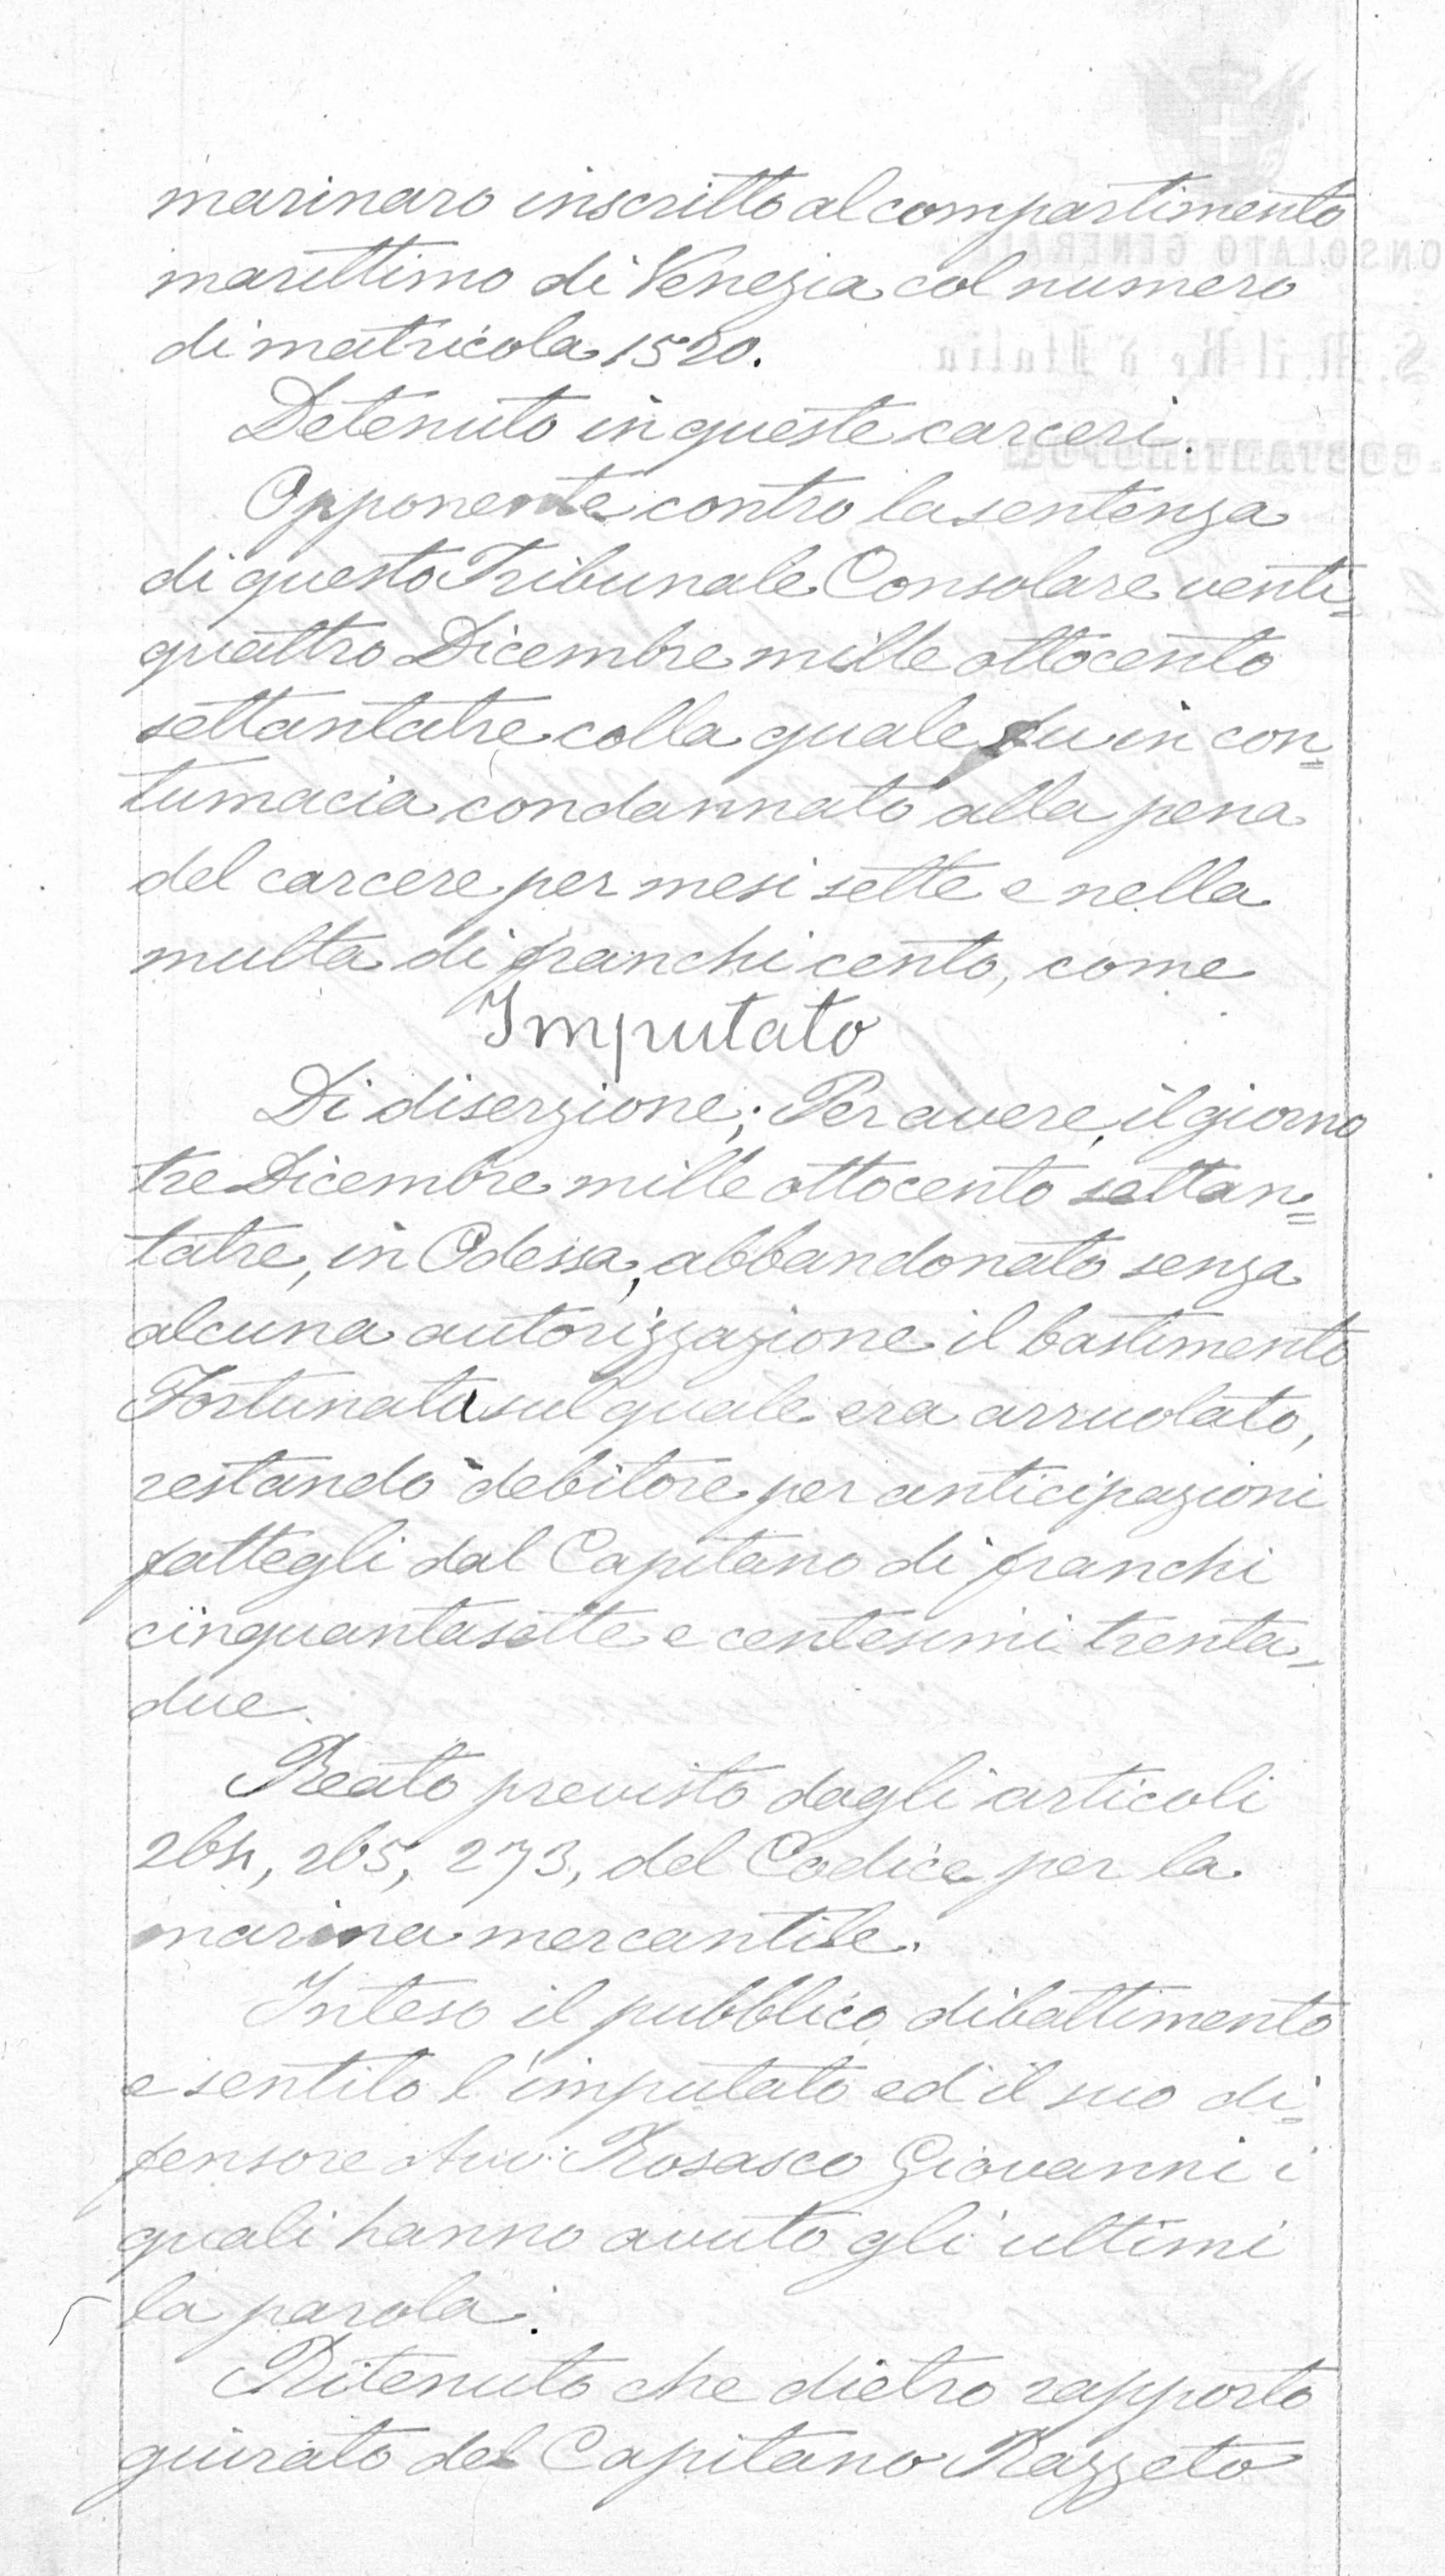 marinaro inscritto al compartimento
marittimo di Venezia col numero
di matricola 1520.
Detenuto in queste carceri.
Opponente contro la sentenza
di questo Tribunale Consolare venti=
quattro Dicembre mille ottocento
settantatre colla quale fu in con=
tumacia condannato alla pena
del carcere per mesi sette e nella
multa di franchi cento, come
Imputato
Di diserzione; Per avere, il giorno
tre Dicembre mille ottocento settan=
tatre, in Odessa, abbandonato senza
alcuna autorizzazione il bastimento
Fortunata sul quale era arruolato,
restando debitore per anticipazioni
fattegli dal Capitano di franchi
cinquantasette e centesimi trenta=
due.
Reato previsto dagli articoli
264, 265, 273, del Codice per la
marina mercantile.
Inteso il pubblico dibattimento
e sentito l'imputato ed il suo di=
fensore Avv. Rosasco Giovanni i
quali hanno avuto gli ultimi
la parola.
Ritenuto che dietro rapporto
giurato del Capitano Razzeto
CONSOLATO GENERALE
S. M. il Re d'Italia
COSTANTINOPOLI